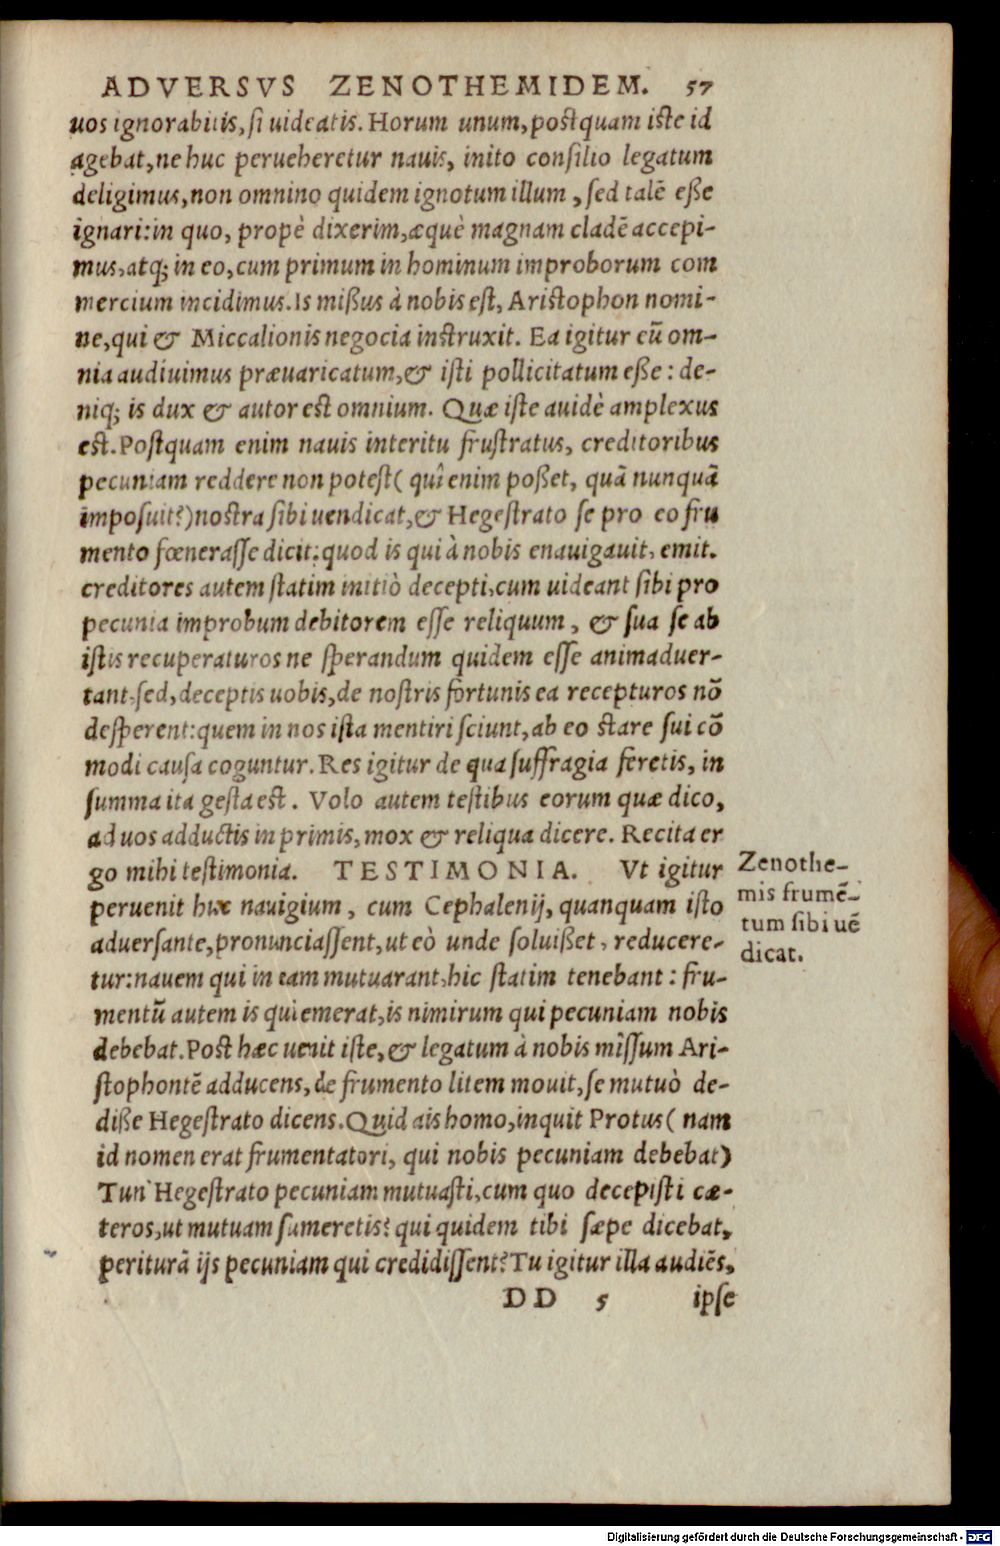 ADVERSVS ZENOTHEMIDEM. 57
uos ignorabitis, si uideatis. Horum unum, postquam iste id
agebat, ne huc perueheretur nauis, inito consilio legatum
deligimus, non omnino quidem ignotum illum, sed talē eße
ignari: in quo, propè dixerim, æquè magnam cladē accepi-
mus, atq; in eo, cum primum in hominum improborum com
mercium incidimus. Is mißus à nobis est, Aristophon nomi-
ne, qui & Miccalionis negocia instruxit. Ea igitur eū om-
nia audiuimus præuaricatum, & isti pollicitatum eße: de-
niq; is dux & autor est omnium. Quæ iste auidè amplexus
est. Postquam enim nauis interitu frustratus, creditoribus
pecuniam reddere non potest (quî enim poßet, quā nunquā
imposuit?) nostra sibi uendicat, & Hegestrato se pro eo fru
mento fœnerasse dicit: quod is qui à nobis enauigauit, emit.
creditores autem statim initiò decepti, cum uideant sibi pro
pecunia improbum debitorem esse reliquum, & sua se ab
istis recuperaturos ne sperandum quidem esse animaduer-
tant, sed, deceptis uobis, de nostris fortunis ea recepturos nō
desperent: quem in nos ista mentiri sciunt, ab eo stare sui cō
modi causa coguntur. Res igitur de qua suffragia feretis, in
summa ita gesta est. Volo autem testibus eorum quæ dico,
ad uos adductis in primis, mox & reliqua dicere. Recita er
go mihi testimonia. TESTIMONIA. Vt igitur
peruenit huc nauigium, cum Cephalenij, quanquam isto
aduersante, pronunciassent, ut eò unde soluißet, reducere-
tur: nauem qui in eam mutuarant, hic statim tenebant: fru-
mentū autem is qui emerat, is nimirum qui pecuniam nobis
debebat. Post hæc uenit iste, & legatum à nobis missum Ari-
stophontē adducens, de frumento litem mouit, se mutuò de-
diße Hegestrato dicens. Quid ais homo, inquit Protus (nam
id nomen erat frumentatori, qui nobis pecuniam debebat)
Tun' Hegestrato pecuniam mutuasti, cum quo decepisti cæ-
teros, ut mutuam sumeretis? qui quidem tibi sæpe dicebat,
periturā ijs pecuniam qui credidissent? Tu igitur illa audiēs,
DD 5 ipse
Zenothe-
mis frumē-
tum sibi uē
dicat.
Digitalisierung gefördert durch die Deutsche Forschungsgemeinschaft - DFG